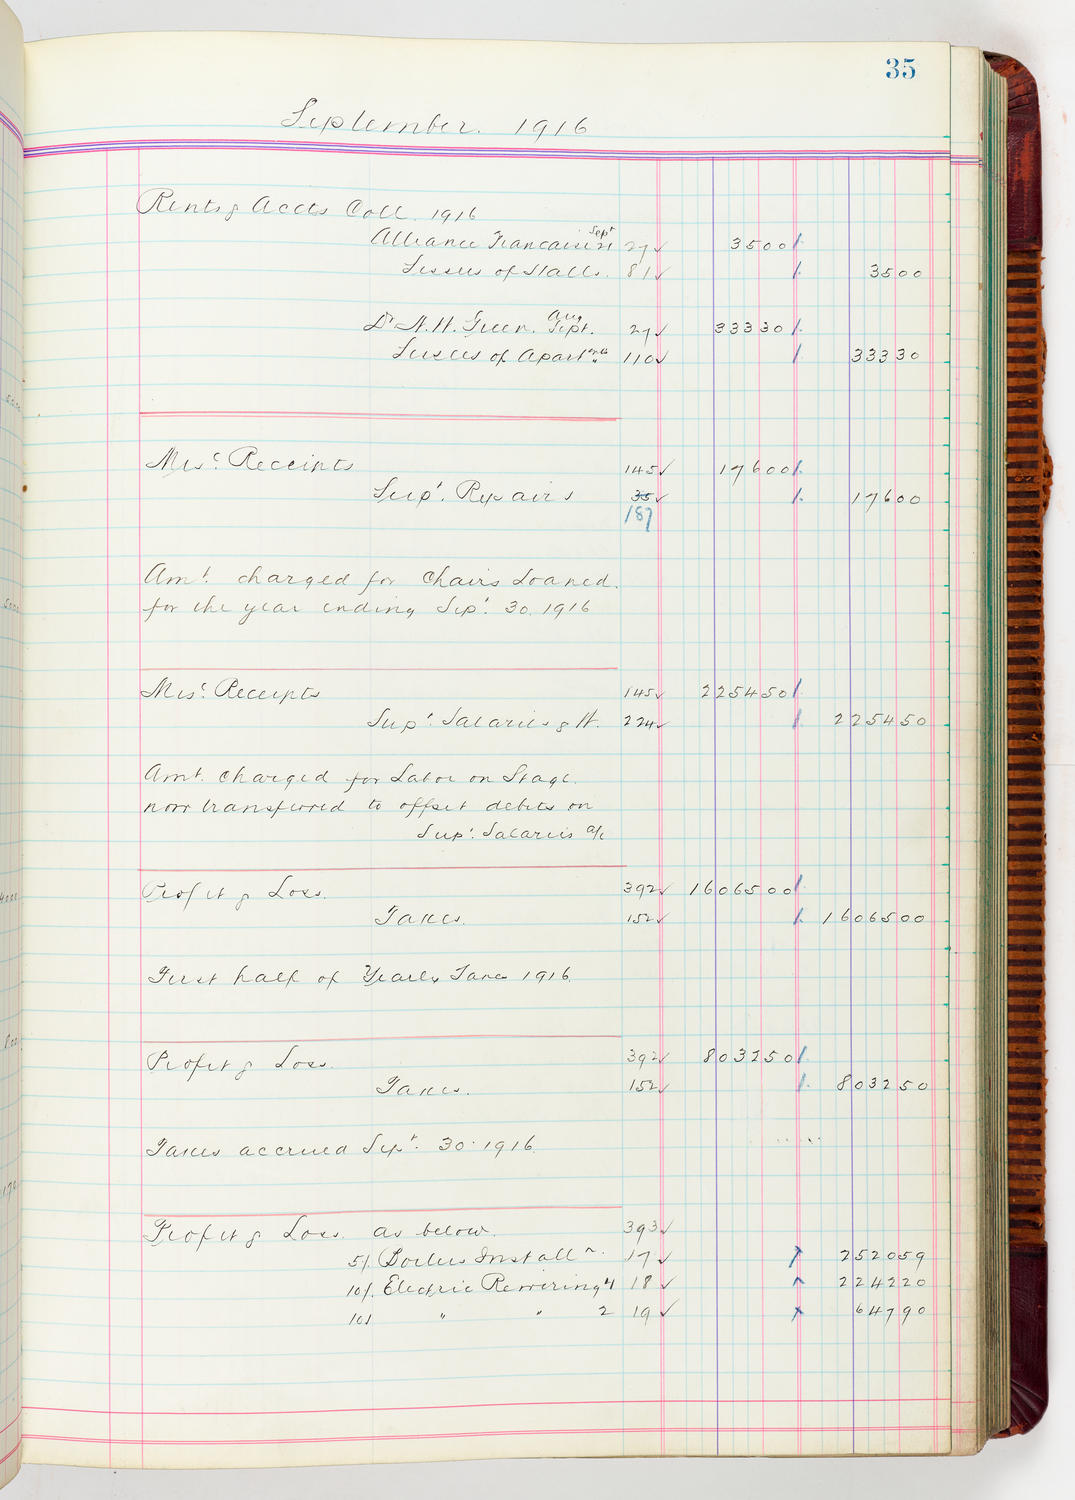 35
September. 1916
Rents & Accts Coll. 1916
Alliance Francaise Sept 21 27 ✓ 3500
Lessees of Stalls. 81 ✓ 3500
Dr A. H. Green. Aug Sept. 27 ✓ 33330
Lessees of Apartmts 110 ✓ 33330
Misc. Receipts 145 ✓ 17600
Supt. Repairs 35 ✓ 17600
187
Amt. charged for Chairs Loaned.
for the year ending Sept. 30. 1916
Misc. Receipts 145 ✓ 225450
Supt. Salaries & W. 224 ✓ 225450
Amt. charged for Labor on Stage.
now transferred to offset debits on
Supt. Salaries a/c
Profit & Loss. 392 ✓ 1606500
Taxes. 152 ✓ 1606500
First half of Yearly Taxes 1916.
Profit & Loss. 392 ✓ 803250
Taxes. 152 ✓ 803250
Taxes accrued Sept. 30. 1916.
Profit & Loss. as below. 393 ✓
5%. Boilers Installn. 17 ✓ 252059
10%. Electric Rewiring 4 18 ✓ 224220
10% " " 2 19 ✓ 64790